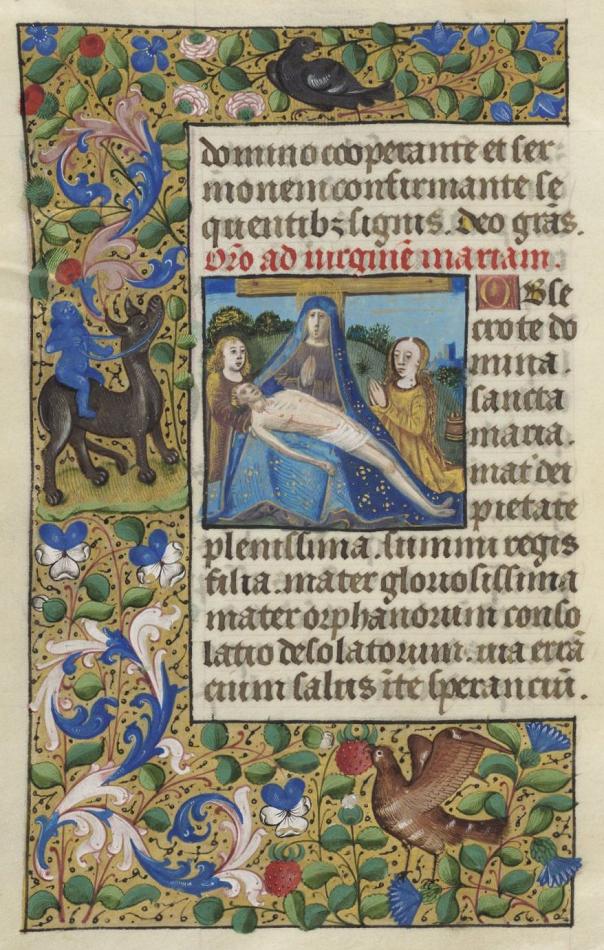 domino cooperante et ser
monem confirmante se
quentibꝫ signis. deo grãs.
Or̃o ad uirginẽ mariam.
Obse
cro te do
mina.
sancta
maria.
mat̃ dei
pietate
plenissima. summi regis
filia. mater gloriosissima
mater orphanorum conso
latio desolatorum. uia errã
cium salus ĩ te speranciũ.